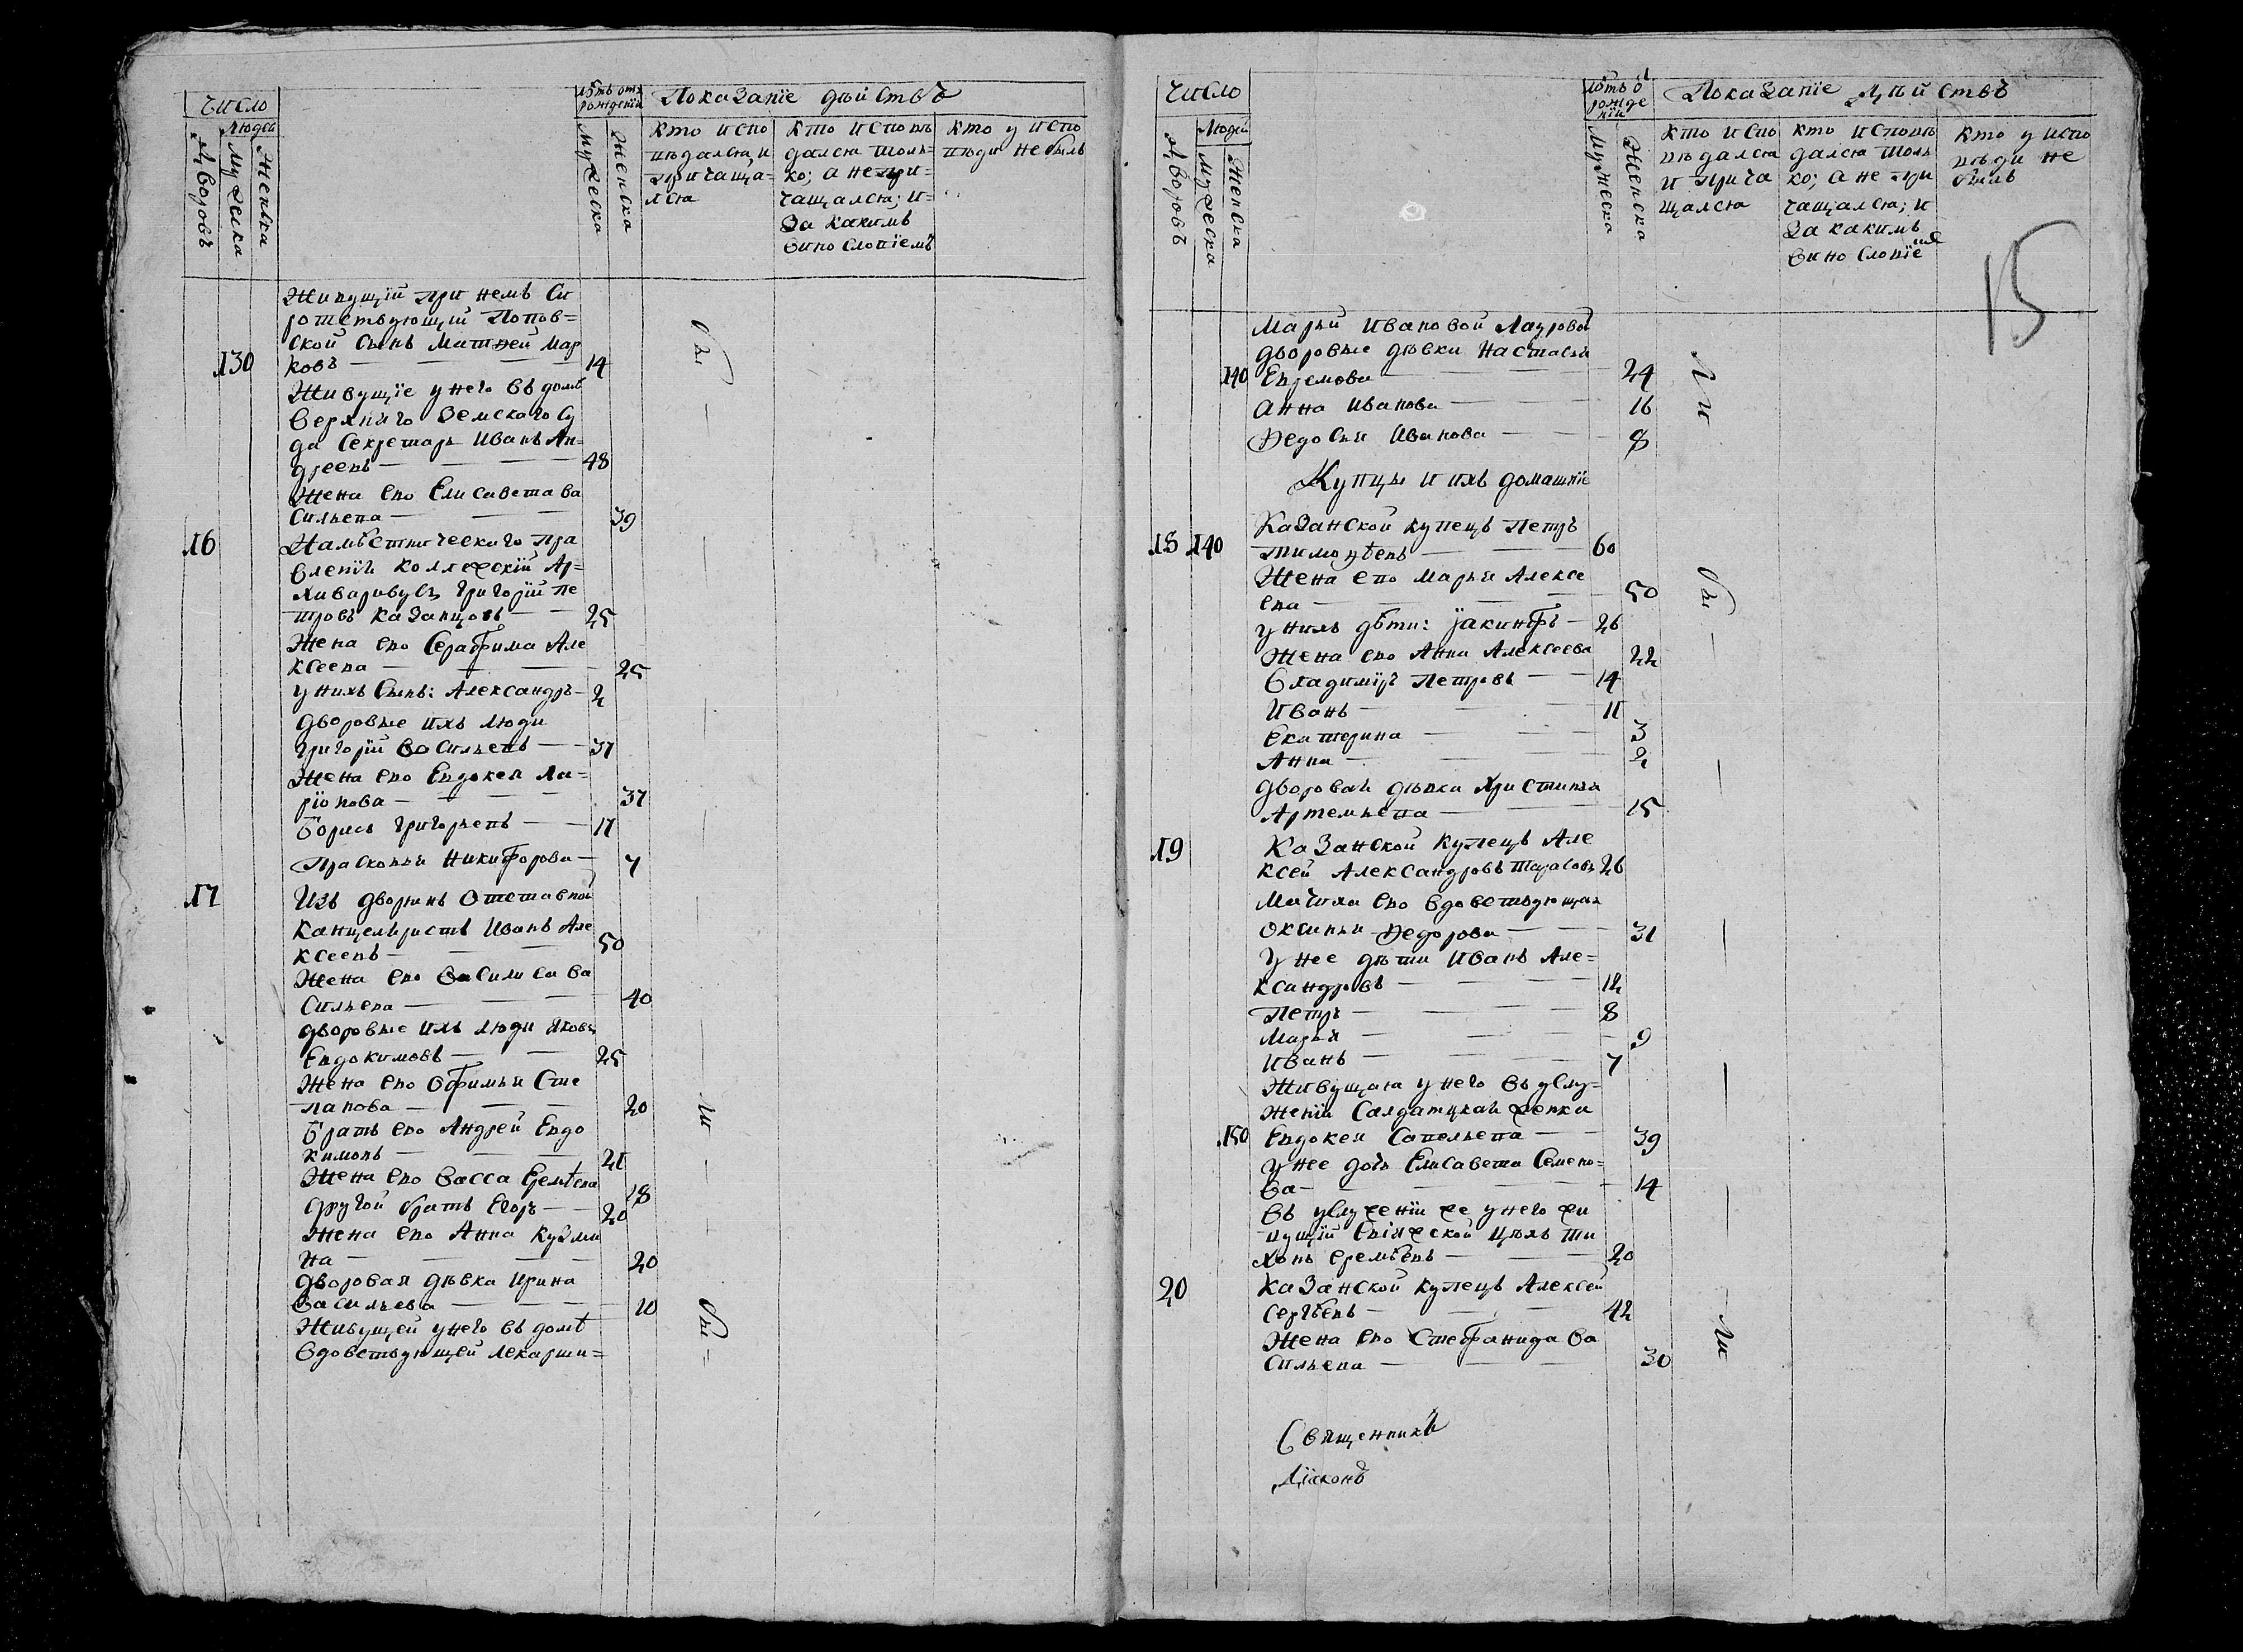 Число
Лѣтъ отъ рожденїя
Показанїе дѣйствъ
Людей
Дворовъ
Мужеска
Женска
Мужеска
Женска
кто испо
вѣдался и
причаща=
лся
кто исповѣ
дался толь=
ко; а не при=
чащался; и=
за какимъ
винословїемъ
кто у испо
вѣди не былъ
Живущїй при немъ Си
ротствующїй Попов=
ской сынъ Матвей Мар
130 ковъ — 14
Живущїе у него въ домѣ
верхняго Земскаго Су
да Секретарь Иванъ Ан=
дреевъ — 48
Жена ево Елисавета Ва
сильева — 39
16 Намѣстническаго пра
вленїя коллежскїй Ар=
хиваривусъ Григорїй Пе
тровъ Казанцовъ — 25
Жена ево Серафима Але
ксеева — 25
у нихъ сынъ: Александръ — 2
дворовые ихъ люди
Григорїй Васильевъ — 37
Жена ево Евдокея Ла=
рїонова — 37
Борисъ Григорьевъ — 17
Прасковья Никифорова — 7
17 Изъ дворянъ отставной
Канцеляристъ Иванъ Але
ксеевъ — 50
Жена ево Василиса Ва
сильева — 40
дворовые ихъ люди Яковъ
Евдокимовъ — 25
Жена ево Офимья Сте
панова — 20
братъ ево Андрей Евдо
кимовъ — 21
Жена ево Васса Еремѣева 18
другой братъ Егоръ — 20
Жена ево Анна Кузми
на — 20
дворовая дѣвка Ирина
Васильева — 10
Живущей у него въ домѣ
вдовствующей лекарши=
бы — ли — бы =
Число
Лѣтъ ѿ рожденїя
Показанїе дѣйствъ
15
Людей
Дворовъ
Мужеска
Женска
Мужеска
Женска
кто испо
вѣдался
и прича
щался
кто исповѣ
дался толь
ко; а не при
чащался; и
за какимъ
винословїемъ
кто у испо
вѣди не
былъ
Марьи Ивановой Лауровой
дворовые дѣвки Настасья
140 Ефремова — 24
Анна Иванова — 16
Федосья Иванова — 8
Купцы и ихъ домашнїе
18 140 Казанской купецъ Петръ
Тимофѣевъ — 60
Жена ево Марья Алексе
ева — 50
у нихъ дѣти: Іакинфъ — 26
Жена ево Анна Алексеева 22
Владимїръ Петровъ — 14
Иванъ — 11
Екатерина — 3
Анна — 2
дворовая дѣвка Христинья
Артемьева — 15
19 Казанской купецъ Але
ксей Александровъ Тарасовъ 26
Мачиха ево вдовствующая
Оксинья Федорова — 31
У нее дѣти Иванъ Але=
ксандровъ — 12
Петръ — 8
Марья — 9
Иванъ — 7
Живущая у него въ услу=
женїи Салдатцкая женка
150 Евдокея Савельева — 39
у нее дочь Елисавета Семено=
ва — 14
въ услуженїи же у него жи
вущїй Ти
хонъ Еремѣевъ — 20
20 Казанской купецъ Алексей
Сергѣевъ — 42
Жена ево Стефанида Ва
сильева — 30
ли — бы — ли
Священникъ
Дїаконъ